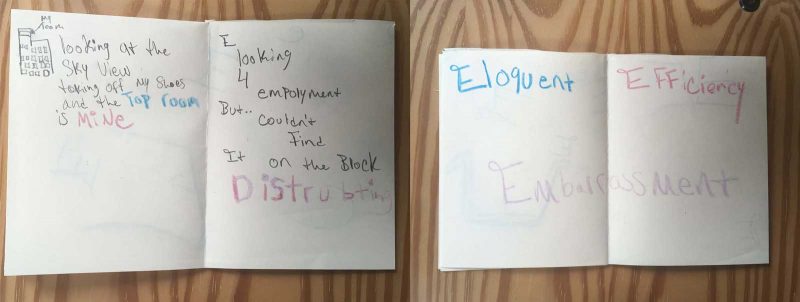 my
room
looking at the
sky view
taking off my shoes
and the Top room
is MiNe
E
looking
4
empolyment
But..
Couldn't
Find
It on the Block
Distrubting
Eloquent
EFFiciency
Embarrassment